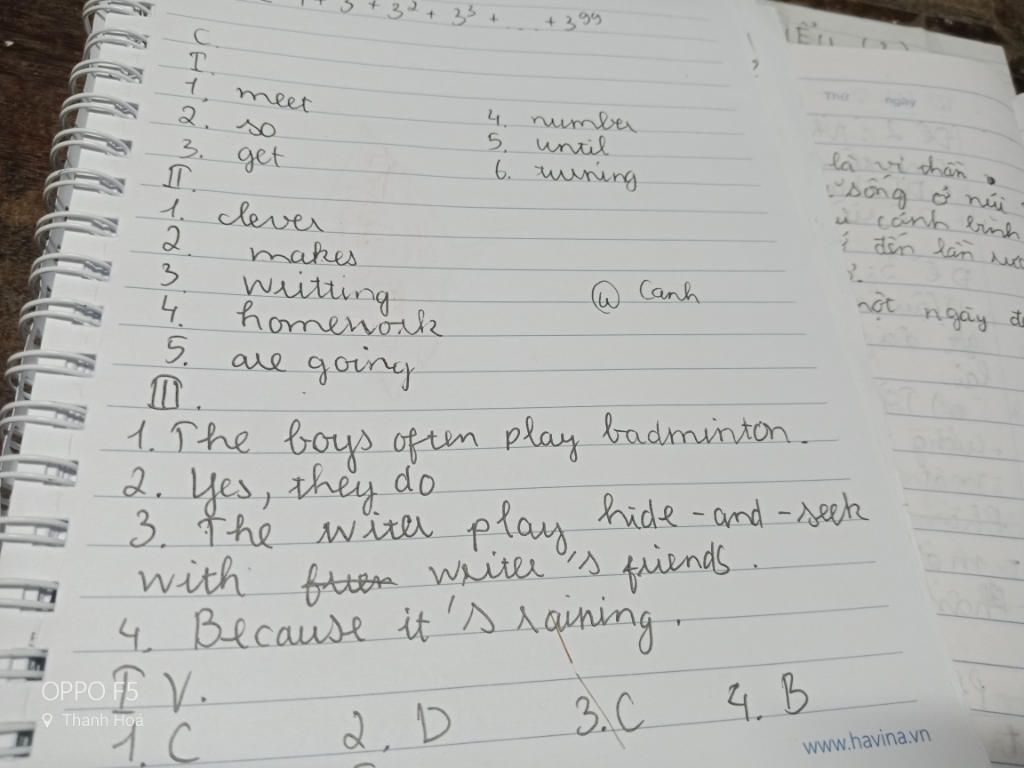 1 + 3 + 3² + 3³ + ... + 3⁹⁹
C.
I.
1. meet
2. so
3. get
4. number
5. until
6. turning
II.
1. clever
2. makes
3. writting
4. homework
5. are going
@ Canh
III.
1. The boys often play badminton.
2. Yes, they do
3. The writer play hide-and-seek
with writer's friends.
4. Because it's raining.
IV.
1. C 2. D 3. C 4. B
www.havina.vn
Thứ ngày
là vi thần
sống ở núi
cánh bình
đến lần
một ngày
OPPO F5
Thanh Hoá